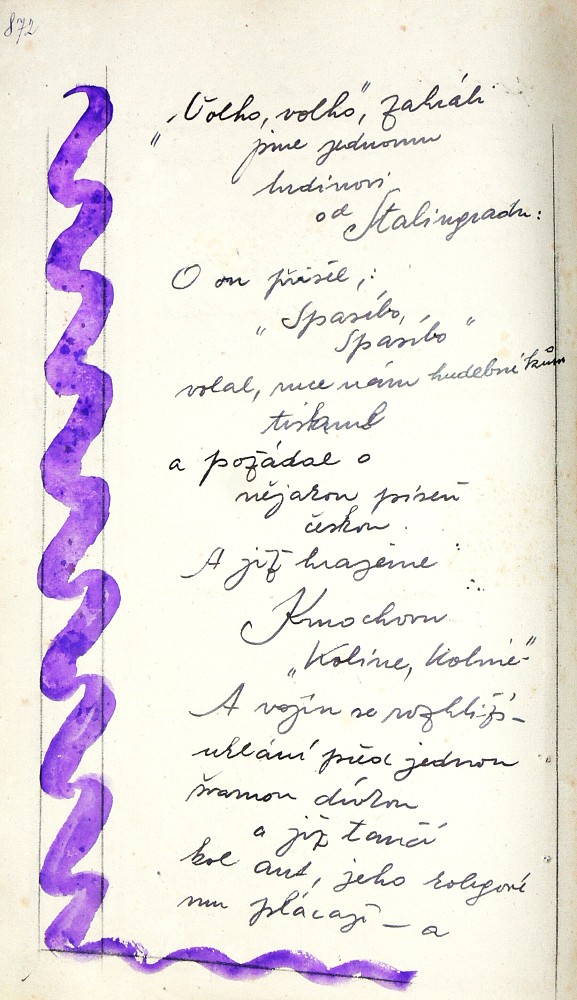 872
„Volho, volho", zahráli
" jsme jednomu
hrdinovi
od Stalingradu:
O on přišel,:
„Spasíbo,
Spasíbo"
volal, ruce nám hudebníkům
tiskaml
a požádal o
nějakou píseň
českou.
A již hrajeme:
Kmochovu
„Koline, Kolíne"
A vojín se rozhlíží–
uklání před jednou
švarnou dívkou
a již tančí
kol aut, jeho kolegové
mu plácají – a